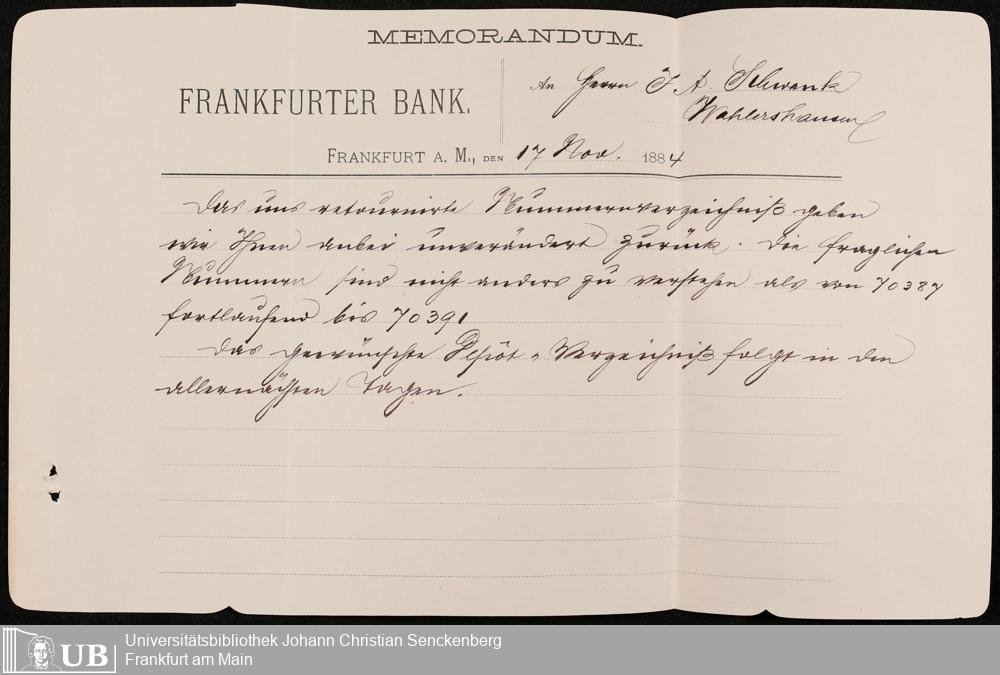 MEMORANDUM.
FRANKFURTER BANK.
An Herrn F. A. Schwenk
Wahlershausen
FRANKFURT A. M., DEN 17 Nov. 1884
Das uns retournirte Nummernverzeichniß geben
wir Ihnen anbei unverändert zurück. Die fraglichen
Nummern sind nicht anders zu verstehen als von 70387
fortlaufend bis 70391
Das gewünschte Verzeichniß folgt in den
allernächsten Tagen.
UB
Universitätsbibliothek Johann Christian Senckenberg
Frankfurt am Main